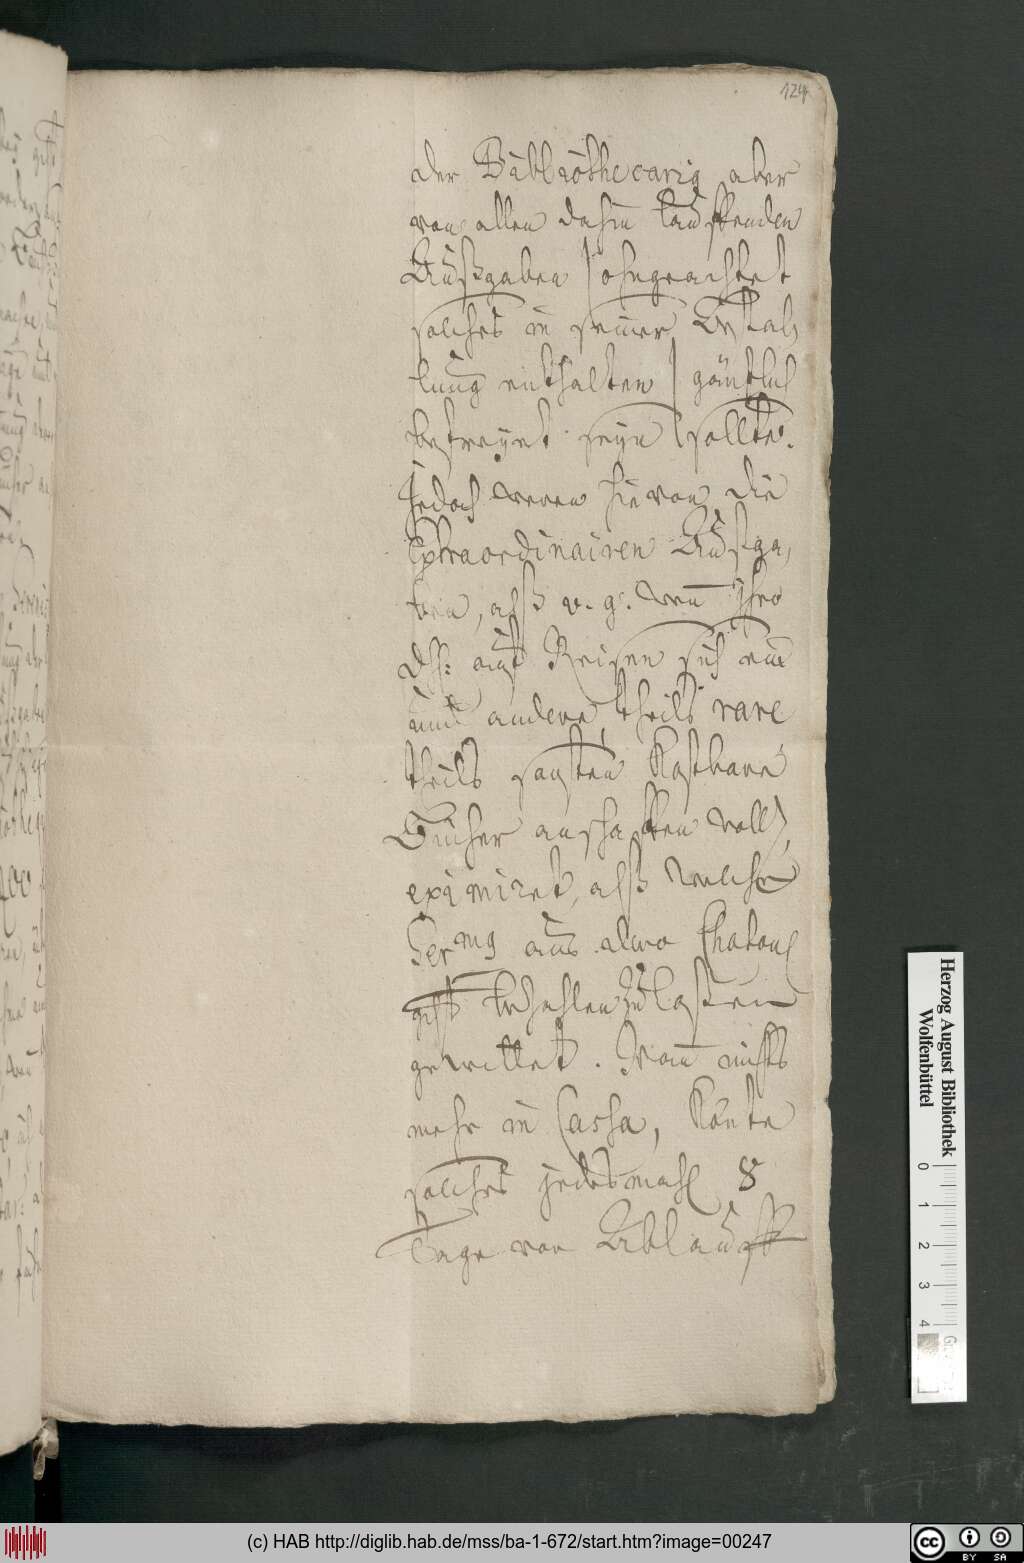 124
der Bibliothecariq aber
von allen dahin lauffenden
Außgaben / ohngeachtet
solches in seiner Bestal,
lung enthalten / gäntzlich
befreyet seyn sollte.
Jedoch weren hievon die
Extraordinairen Außga,
ben, alß v. g. wen Ihro
auf Reisen sich ein
und andere theils rare
theils sonsten Kostbare
Bücher anschaffen wolle,
eximiret, alß welche
Ser mq aus dero Chatoul
bezahlen zu laßen
gewillet. Wan nichts
mehr in Cassa, Könte
solches jedesmahl 8
Tage vor Ablauff
Herzog August Bibliothek
Wolfenbüttel
0 1 2 3 4
(c) HAB http://diglib.hab.de/mss/ba-1-672/start.htm?image=00247
cc BY SA